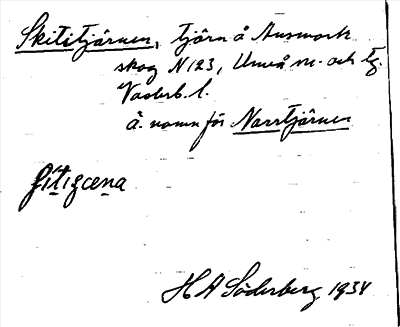 Skititjärnen, tjärn å Ansmark
skog N 123, Umeå sn. och tg.
Västerb. l.
Ä. namn för Norrtjärnen
H A Söderberg 1934